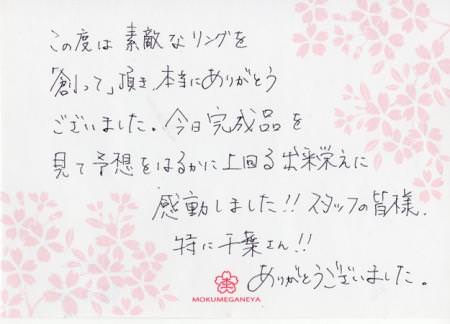 この度は素敵なリングを
「創って」頂き、本当にありがとう
ございました。今日完成品を
見て予想をはるかに上回る出来栄えに
感動しました!! スタッフの皆様、
特に千葉さん!!
ありがとうございました。
MOKUMEGANEYA